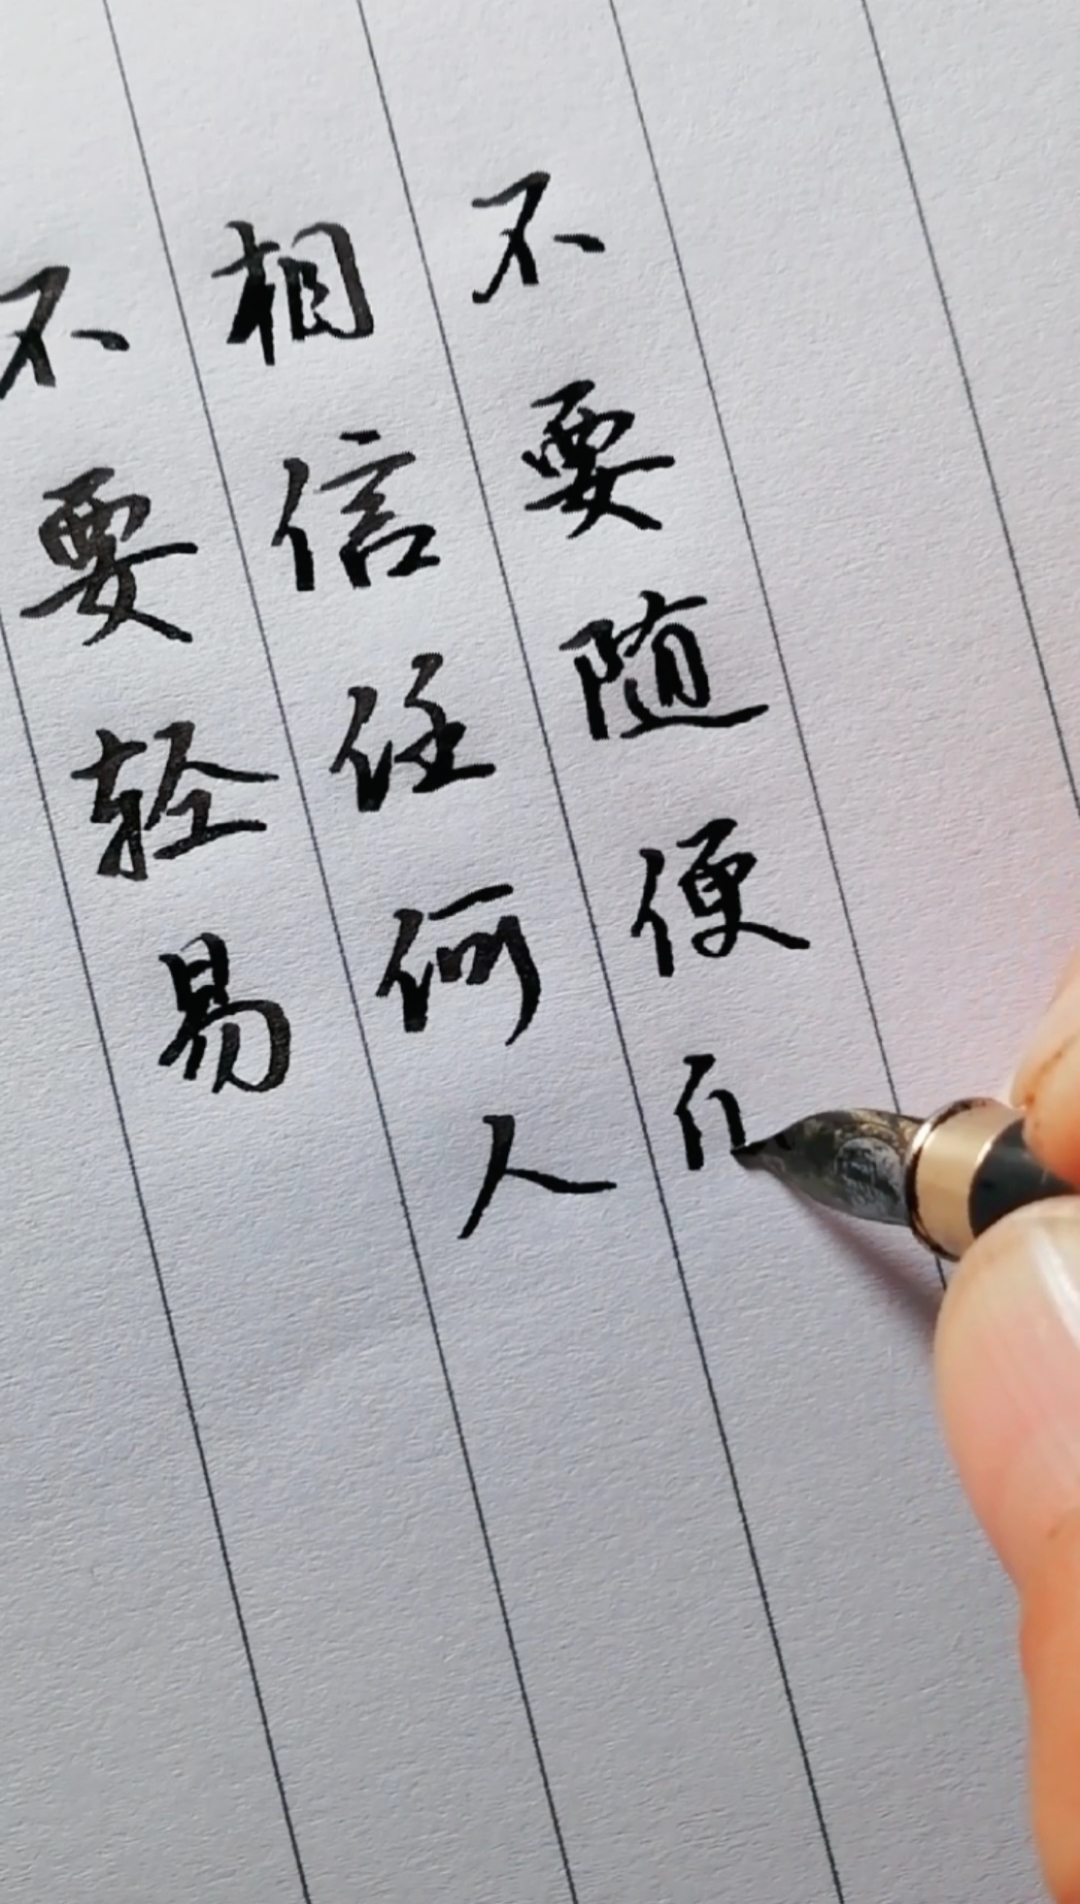 不要轻易
相信任何人
不要随便